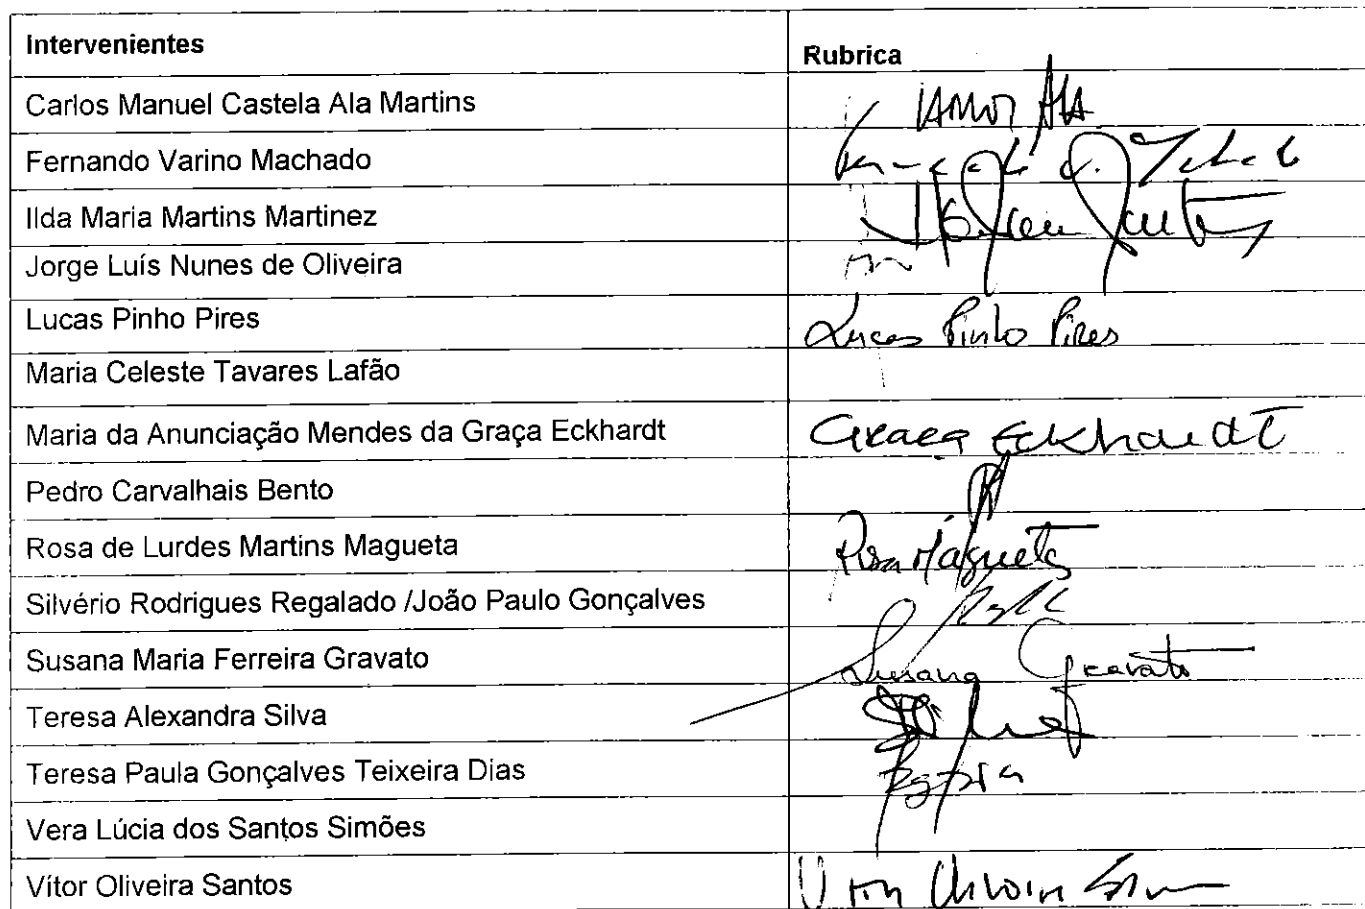 Intervenientes
Rubrica
Carlos Manuel Castela Ala Martins
Fernando Varino Machado
Ilda Maria Martins Martinez
Jorge Luís Nunes de Oliveira
Lucas Pinho Pires Lucas Pinho Pires
Maria Celeste Tavares Lafão
Maria da Anunciação Mendes da Graça Eckhardt Graça Eckhardt
Pedro Carvalhais Bento
Rosa de Lurdes Martins Magueta Rosa Magueta
Silvério Rodrigues Regalado /João Paulo Gonçalves
Susana Maria Ferreira Gravato Susana Gravato
Teresa Alexandra Silva
Teresa Paula Gonçalves Teixeira Dias
Vera Lúcia dos Santos Simões
Vítor Oliveira Santos